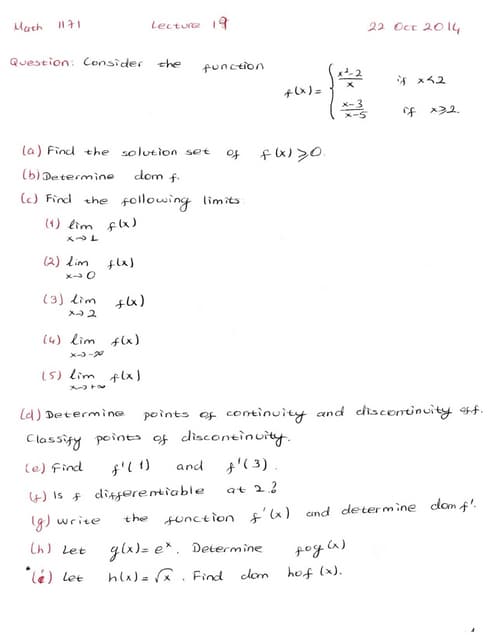 Math 1171 Lecture 19 22 Oct 2014
Question: Consider the function
f(x) = { x²-2 / x if x<2
x-3 / x-5 if x⩾2.
(a) Find the solution set of f(x)⩾0.
(b) Determine dom f.
(c) Find the following limits:
(1) lim x→1 f(x)
(2) lim x→0 f(x)
(3) lim x→2 f(x)
(4) lim x→-∞ f(x)
(5) lim x→+∞ f(x)
(d) Determine points of continuity and discontinuity of f.
Classify points of discontinuity.
(e) Find f'(1) and f'(3).
(f) Is f differentiable at 2?
(g) write the function f'(x) and determine dom f'.
(h) Let g(x)= eˣ. Determine fog(x)
*(i) Let h(x)= √x. Find dom hof (x).